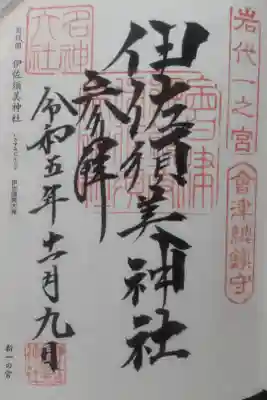 岩代一之宮
會津總鎮守
伊佐須美神社
参拝
令和五年十一月九日
名神大社
伊佐須美神社
新一の宮